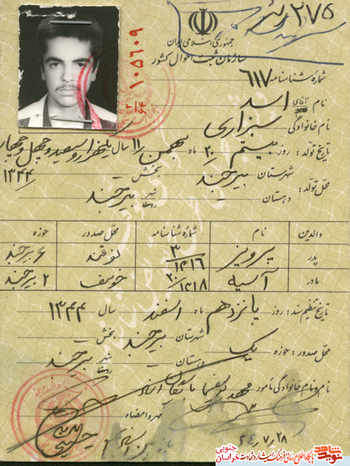 ۲۷۵
جمهوری اسلامی ایران
سازمان ثبت احوال کشور
شماره شناسنامه ۶۱۷
۱۰۵۶۰۹
نام آقای اسد
نام خانوادگی سبزاری
تاریخ تولد: روز بیستم ۲۰ ماه بهمن ۱۱ سال یکهزار و سیصد و چهل و چهار
۱۳۴۴
محل تولد: شهرستان بیرجند بخش
دهستان بیرجند
والدین نام شماره شناسنامه محل صدور
پدر پرویز ۳ ۱۳۱۶ بیرجند
مادر آسیه ۲۰ ۱۳۱۸ خوسف ۲ بیرجند
تاریخ تنظیم سند: روز پانزدهم ماه اسفند سال ۱۳۴۴
محل صدور: حوزه یک شهرستان بیرجند بخش
دهستان بیرجند
نام و نام خانوادگی مأمور
مهر و امضاء
۲۸ / ۷ / ۶۴
خراسان جنوبی